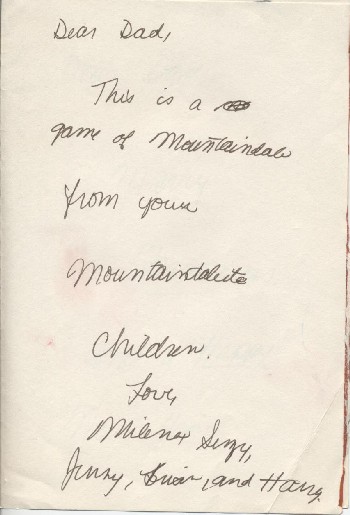 Dear Dad,
This is a
game of Mountaindale
from your
Mountaindaleite
Children.
Love,
Milena
and Harry.